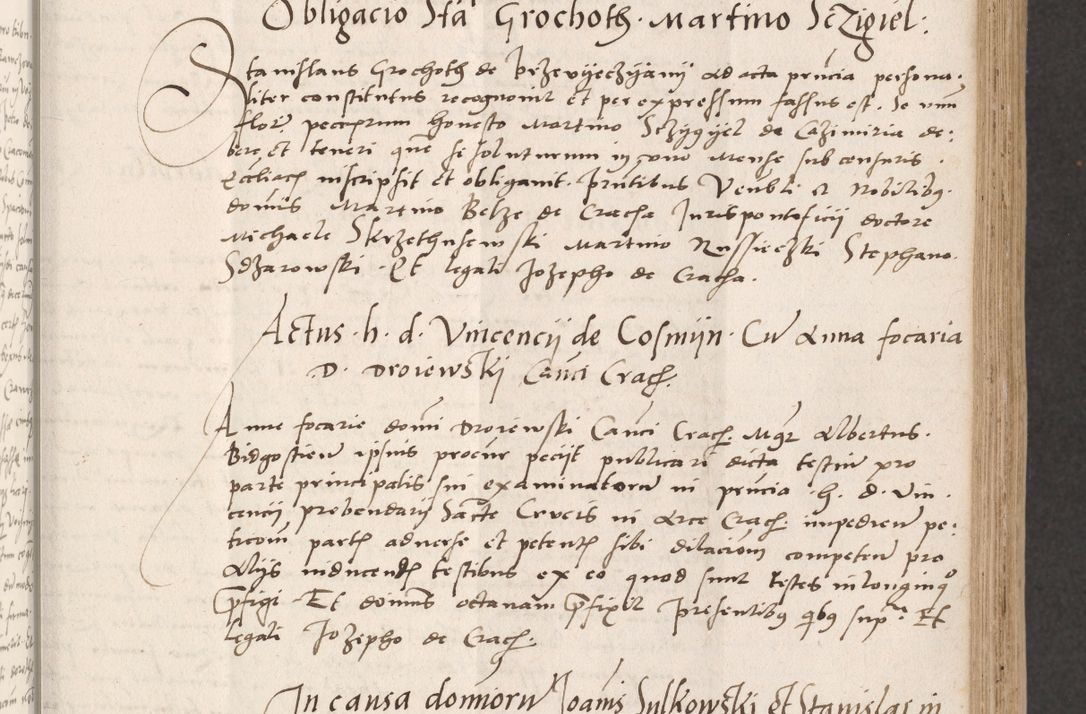 Obligacio Sta Grochoth. Martino Sczigiel.
Stanislaus Grochoth de Brzevyeczyany ad acta prncia persona.
liter constitutus recognovit et per expressum fassus est. Se unum
flor. pecuniarum honesto Martino Sczygyel de Cazimiria de:
bere et teneri quem se soluturum in uno Mense sub censuris.
Eccliach inscripsit et obligavit. Prntibus Venbl. et Nobilibus.
domis Martino Belze de Cracha Juris pontificij doctore
Michaele Skrzethusewski Martino Russieczki Stephano.
Sdzarowski. Et legali Jozepho de Cracha.
Actus. h. d. Vincencij de Cosmijn. Cu Anna focaria
D. Droiewskij Canci Crach.
Anne focarie domi Droiewski Canci Crach. Mgr Albertus.
Bidgostien ipsius procur peciit publicari dicta testiu pro
parte principalis sui examinatoru in prncia. h. d. Vin
cencij prebendarij Sancte Crucis in Arce Crach. impedien pe:
ticom parth adverse et petenth sibi dilaciom competen pro
Alijs inducendis testibus ex eo quod sunt testes in longinquo
prefigi Et dominus octavam prefixit Presentibus quibus supra Et
legali Jozepho de Crach.
In causa domioru Joanis Sulkowski et Stanislai in